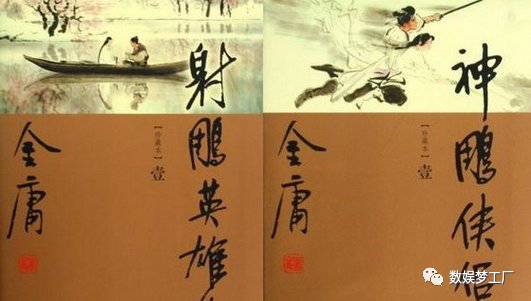 射鵰英雄
【珍藏本】
壹
金庸
神鵰侠侣
【珍藏本】
壹
金庸
数娱梦工厂